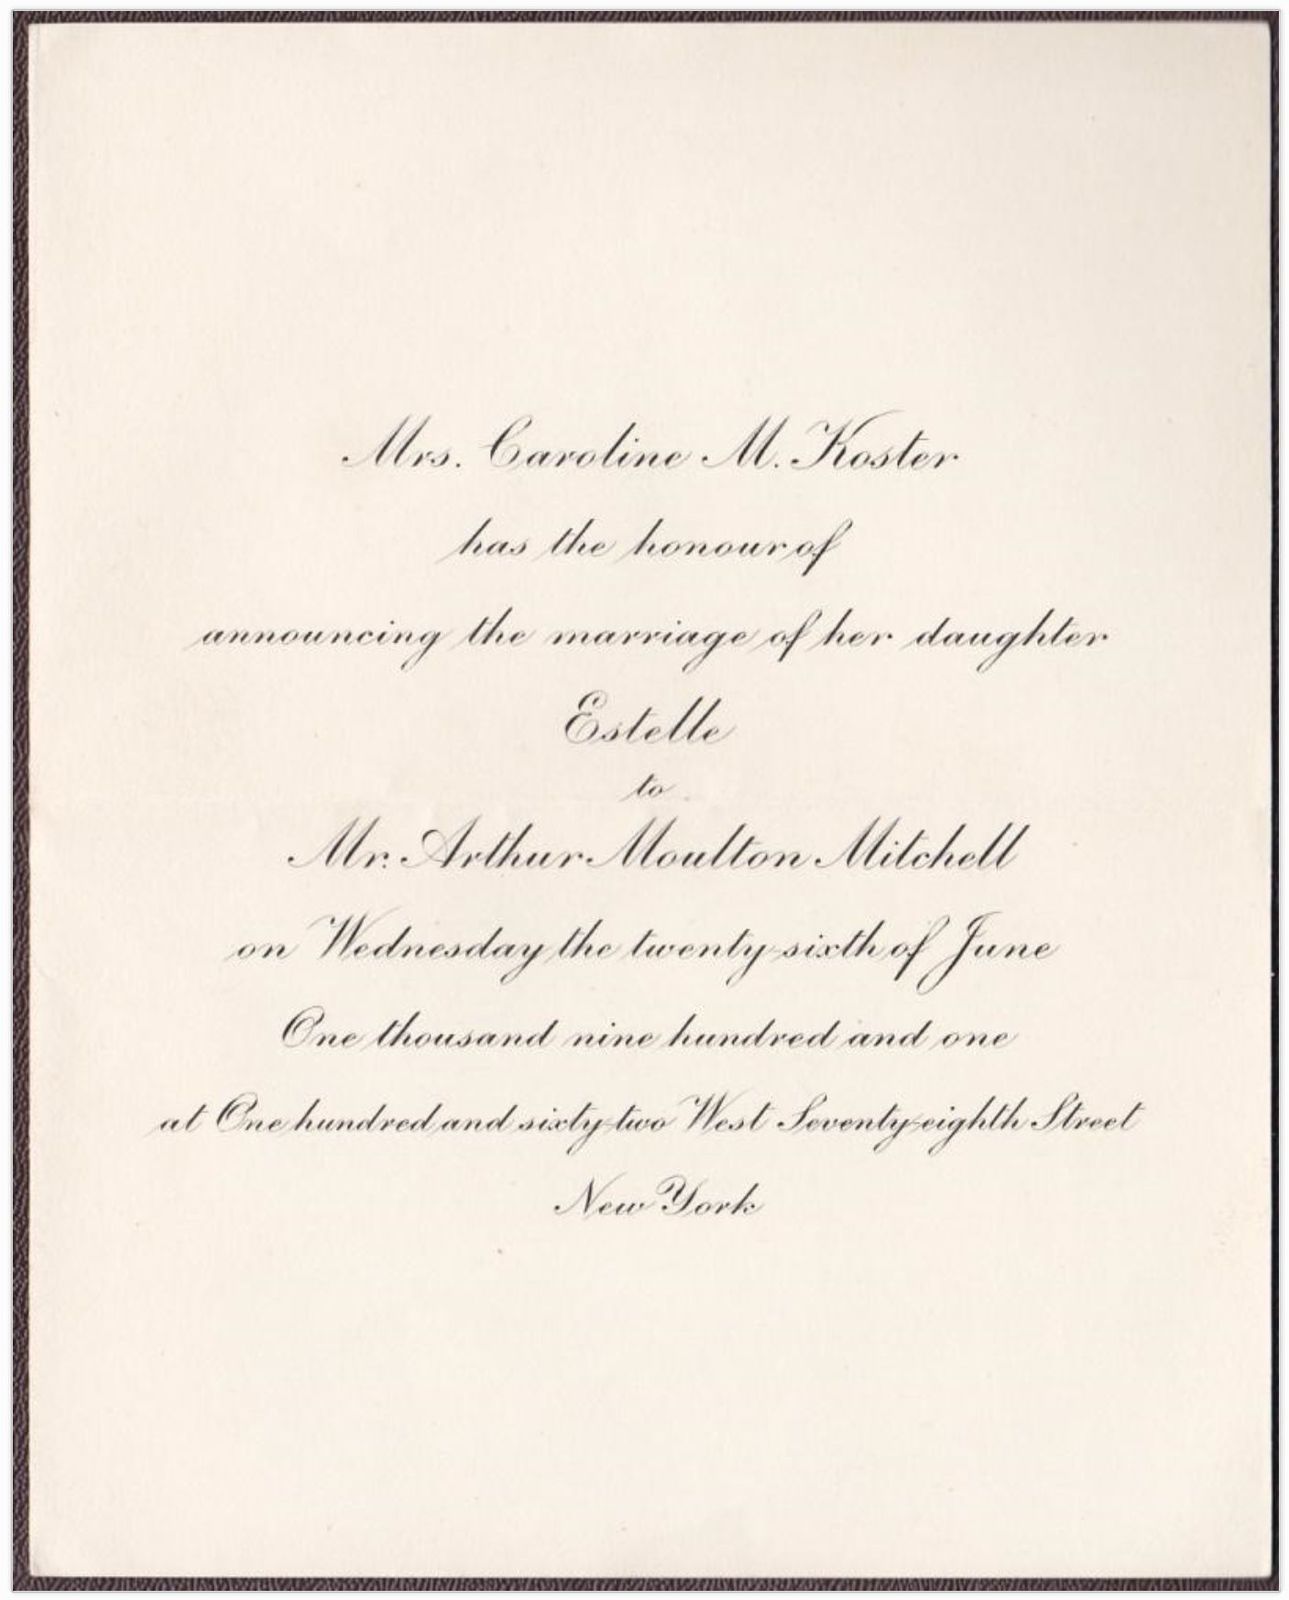 Mrs. Caroline M. Koster
has the honour of
announcing the marriage of her daughter
Estelle
to
Mr. Arthur Moulton Mitchell
on Wednesday the twenty-sixth of June
One thousand nine hundred and one
at One hundred and sixty-two West Seventy-eighth Street
New York